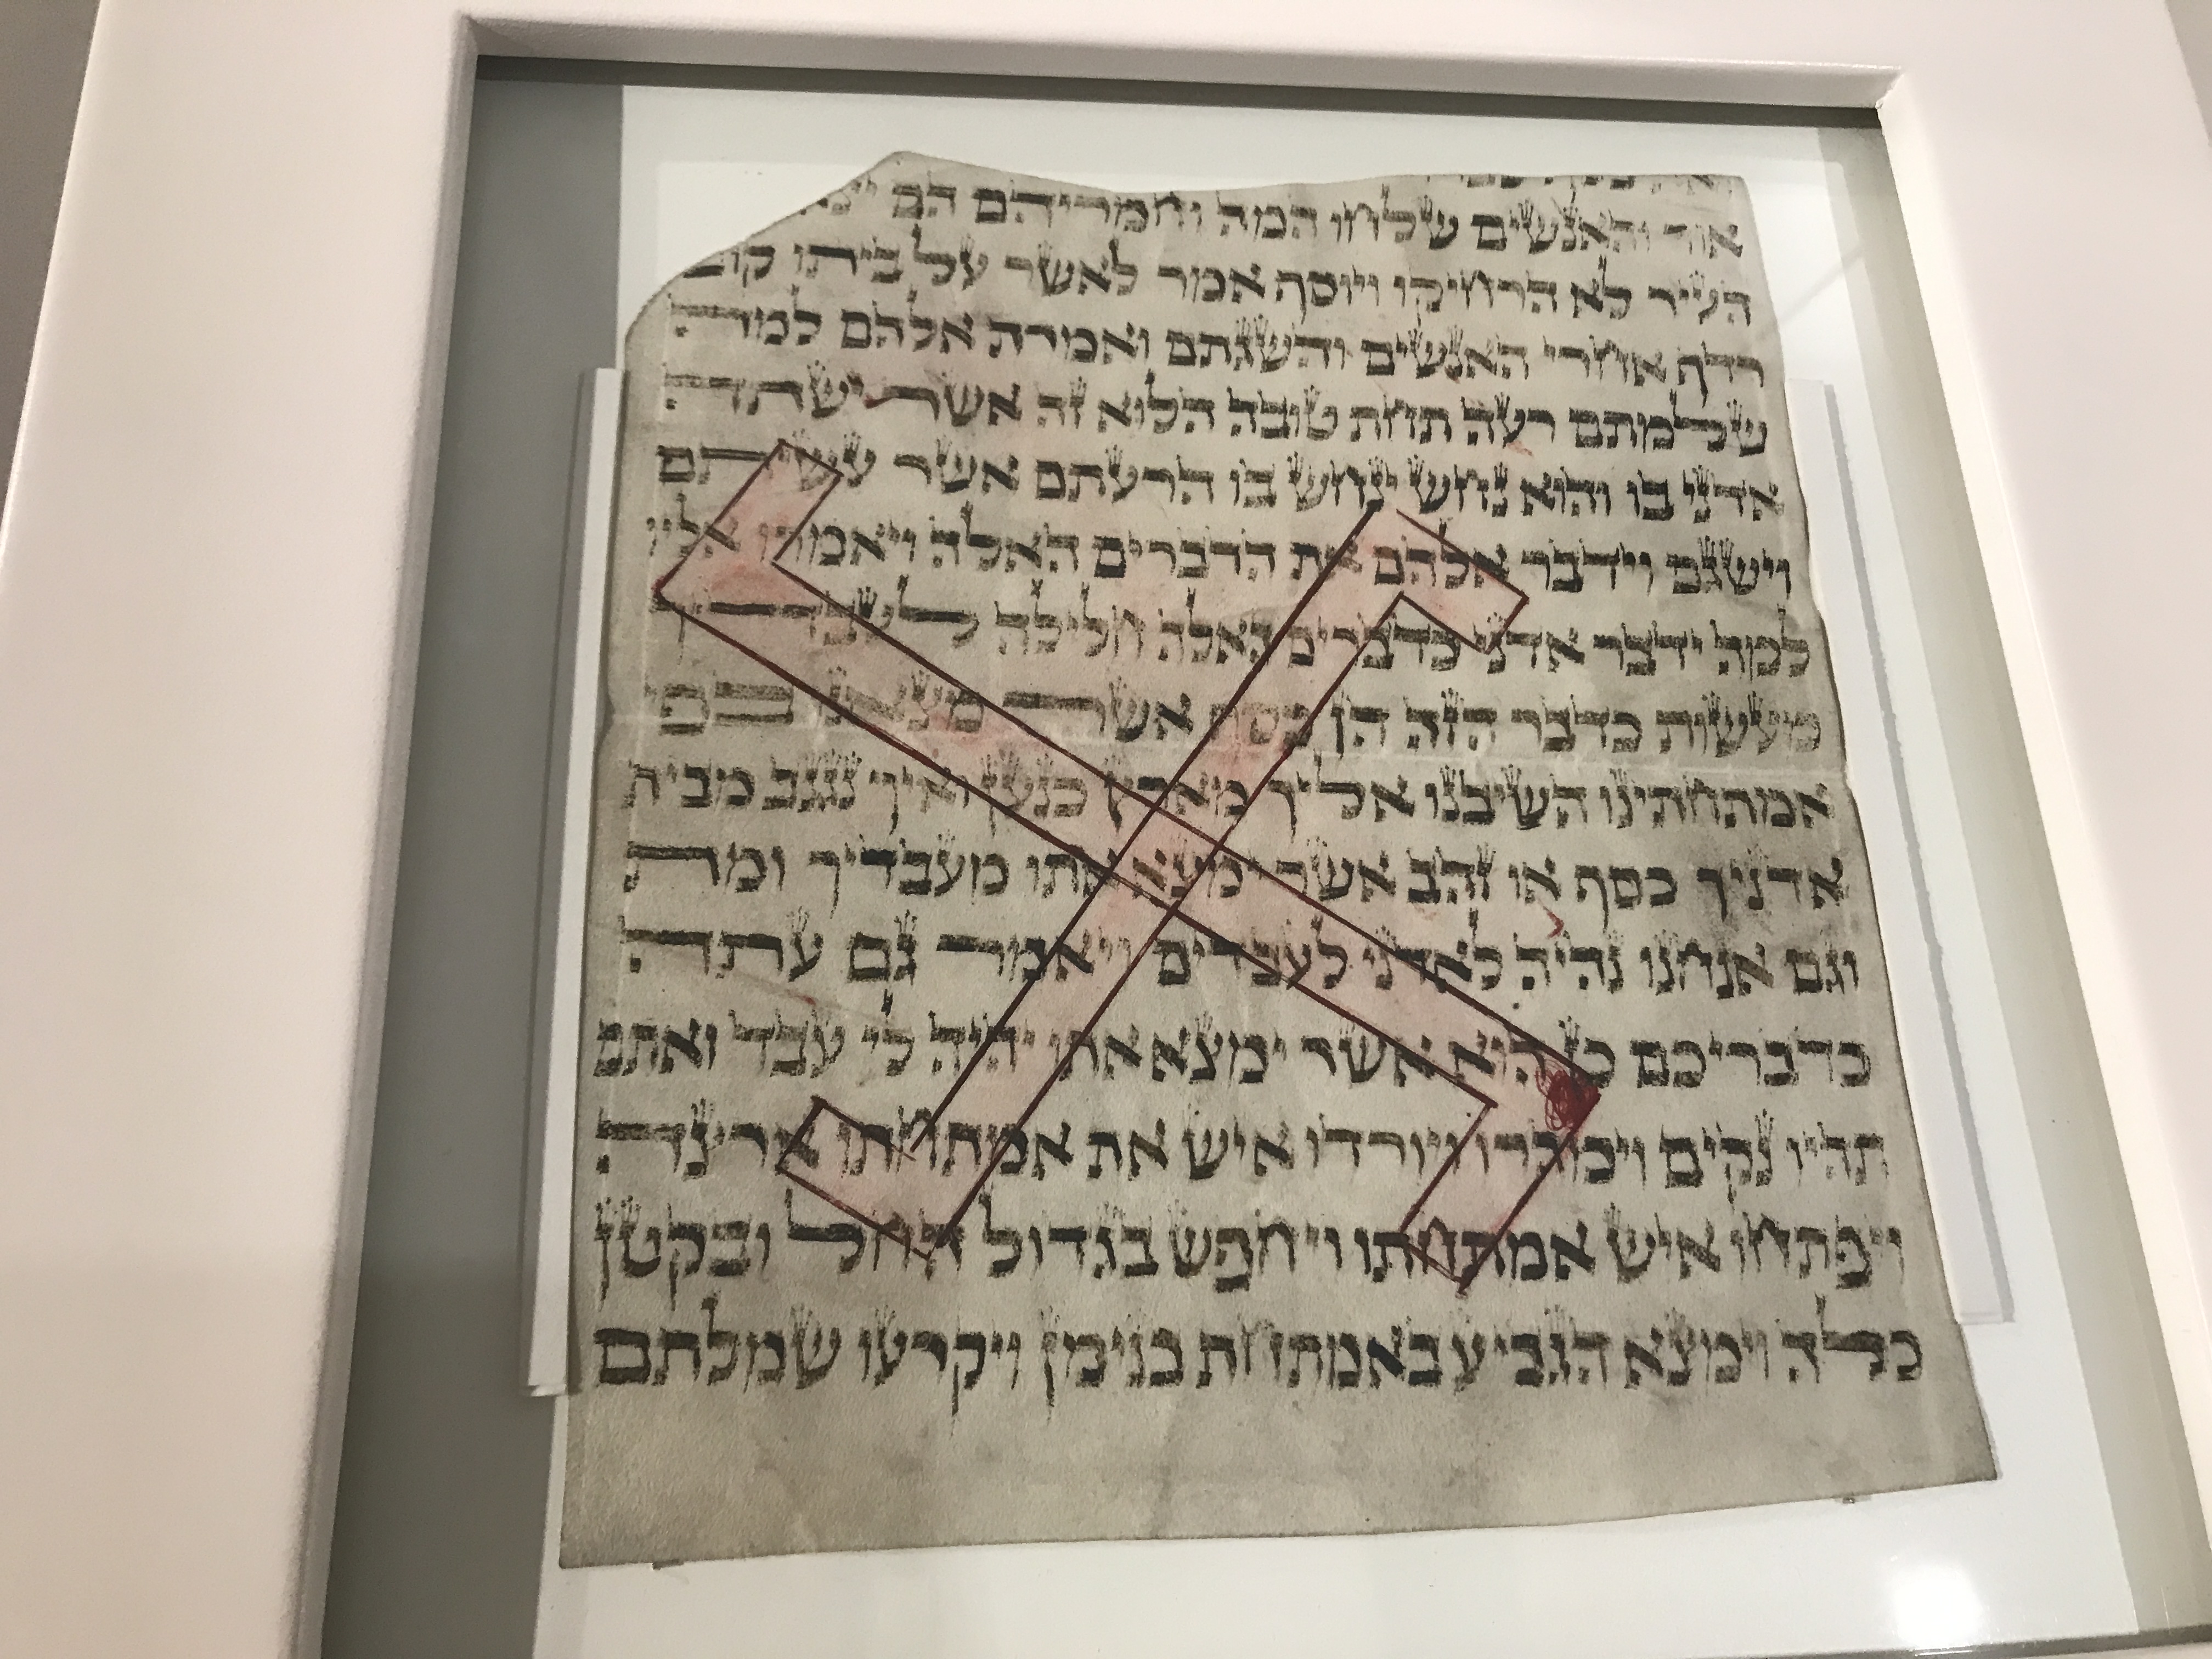 אור והאנשים שלחו המה וחמריהם הם
העיר לא הרחיקו ויוסף אמר לאשר על ביתו קום
רדף אחרי האנשים והשגתם ואמרת אלהם למה
שלמתם רעה תחת טובה הלוא זה אשר ישתה
אדני בו והוא נחש ינחש בו הרעתם אשר עשיתם
וישגם וידבר אלהם את הדברים האלה ויאמרו אליו
למה ידבר אדני כדברים האלה חלילה לעבדיך
מעשות כדבר הזה הן כסף אשר מצאנו בפי
אמתחתינו השיבנו אליך מארץ כנען ואיך נגנב מבית
אדניך כסף או זהב אשר ימצא אתו מעבדיך ומת
וגם אנחנו נהיה לאדני לעבדים ויאמר גם עתה
כדבריכם כן הוא אשר ימצא אתו יהיה לי עבד ואתם
תהיו נקים וימהרו ויורדו איש את אמתחתו ארצה
ויפתחו איש אמתחתו ויחפש בגדול החל ובקטן
כלה וימצא הגביע באמתחת בנימן ויקרעו שמלתם